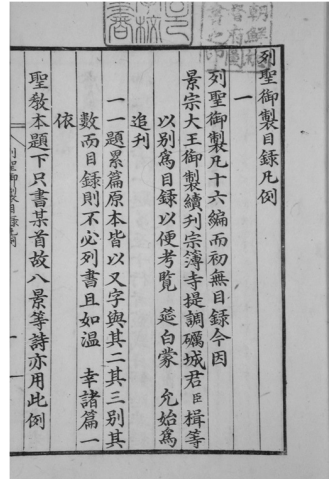 列聖御製目録凡例
一
列聖御製凡十六編而初無目録今因
景宗大王御製續刋宗簿寺提調礪城君臣楫等
以別爲目録以便考覧 筵白蒙 允始爲
追刋
一一題累篇原本皆以又字與其二其三别其
數而目録則不必列書且如温 幸諸篇一
依
聖教本題下只書某首故八景等詩亦用此例
列聖御製目録凡例